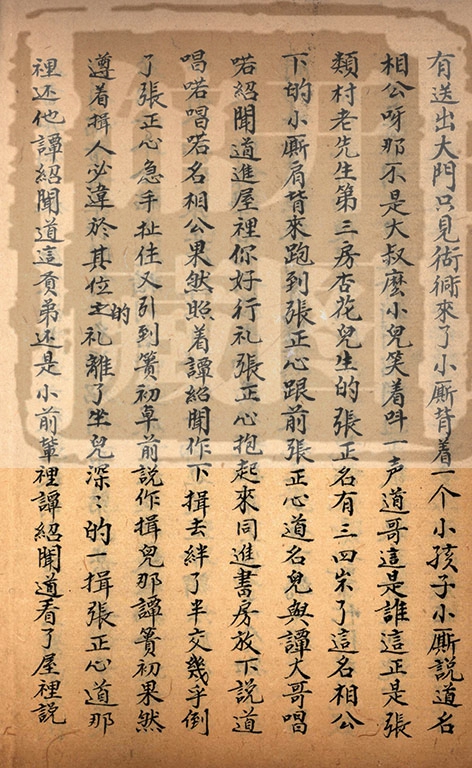 有送出大門只見衚衕來了小厮背着一个小孩子小厮説道名
相公呀那不是大叔麽小兒笑着呌一声道哥這是誰這正是張
類村老先生第三房杏花兒生的張正名有三四嵗了這名相公
下的小厮肩背來跑到張正心跟前張正心道名兒與譚大哥唱
喏紹聞道進屋裡你好行礼張正心抱起來同進書房放下説道
唱喏唱喏名相公果然照着譚紹聞作下揖去絆了半交幾乎倒
了張正心急手扯住又引到簣初草前説作揖兒那譚簣初果然
遵着揖人必違於其位的礼離了坐兒深：的一揖張正心道那
裡还他譚紹聞道這賁弟还是小前輩裡譚紹聞道看了屋裡説